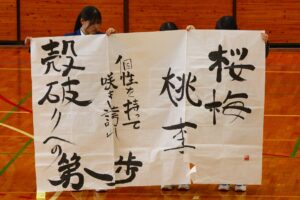 桜梅
桃李
個性を持って
咲き誇れ
殻破りへの
第一歩